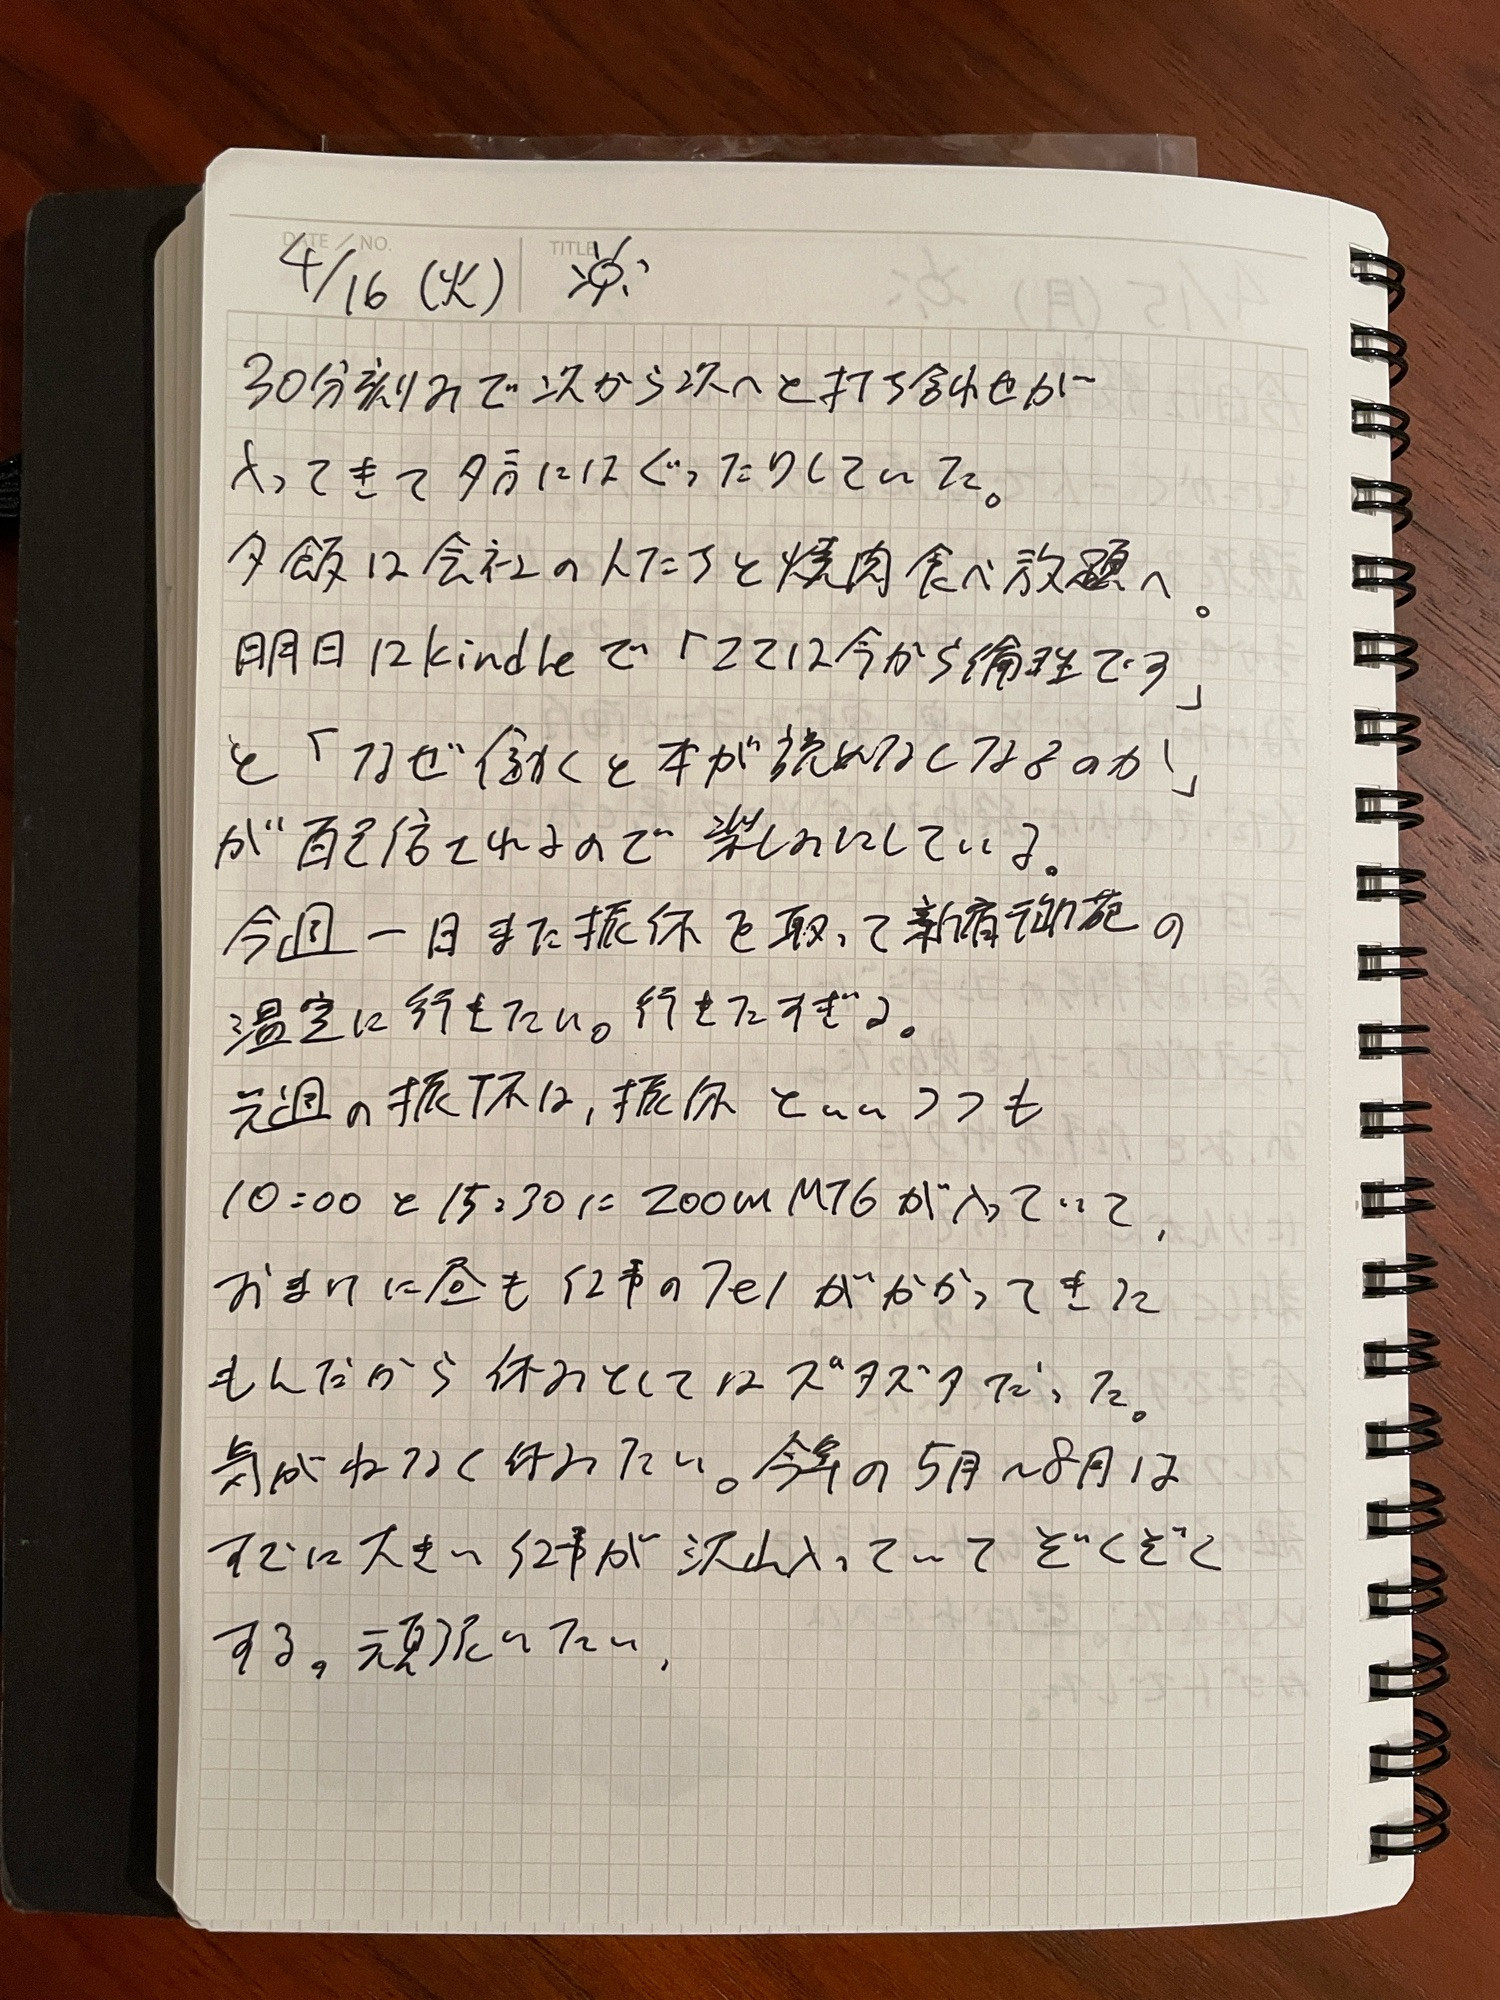 DATE / NO.
TITLE
4/16 (火)
30分刻みで次から次へと打ち合わせが
入ってきて夕方にはぐったりしていた。
夕飯は会社の人たちと焼肉食べ放題へ。
明日はkindleで「ここは今から倫理です」
と「なぜ働くと本が読めなくなるのか」
が配信されるので楽しみにしている。
今週一日また振休を取って新宿御苑の
温室に行きたい。行きたすぎる。
先週の振休は,振休といいつつも
10:00と15:30にzoomMTGが入っていて,
おまけに昼も仕事のTelがかかってきた
もんだから休みとしてはズタズタだった。
気がねなく休みたい。今年の5月~8月は
すでに大きい仕事が沢山入っていてぞくぞく
する。頑張りたい,